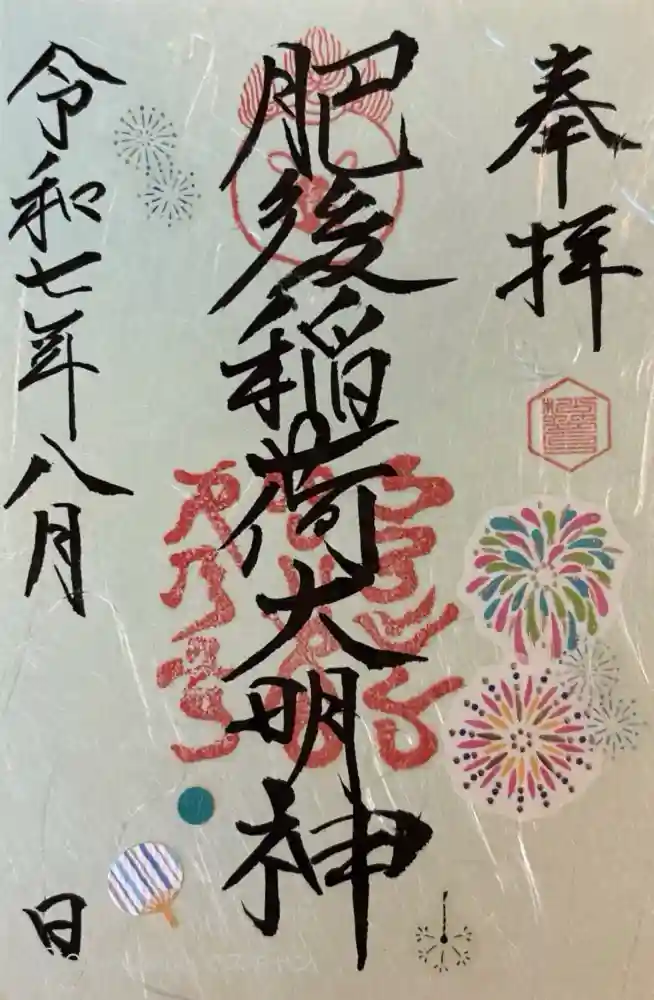 奉拝
肥後稲荷大明神
令和七年八月 日